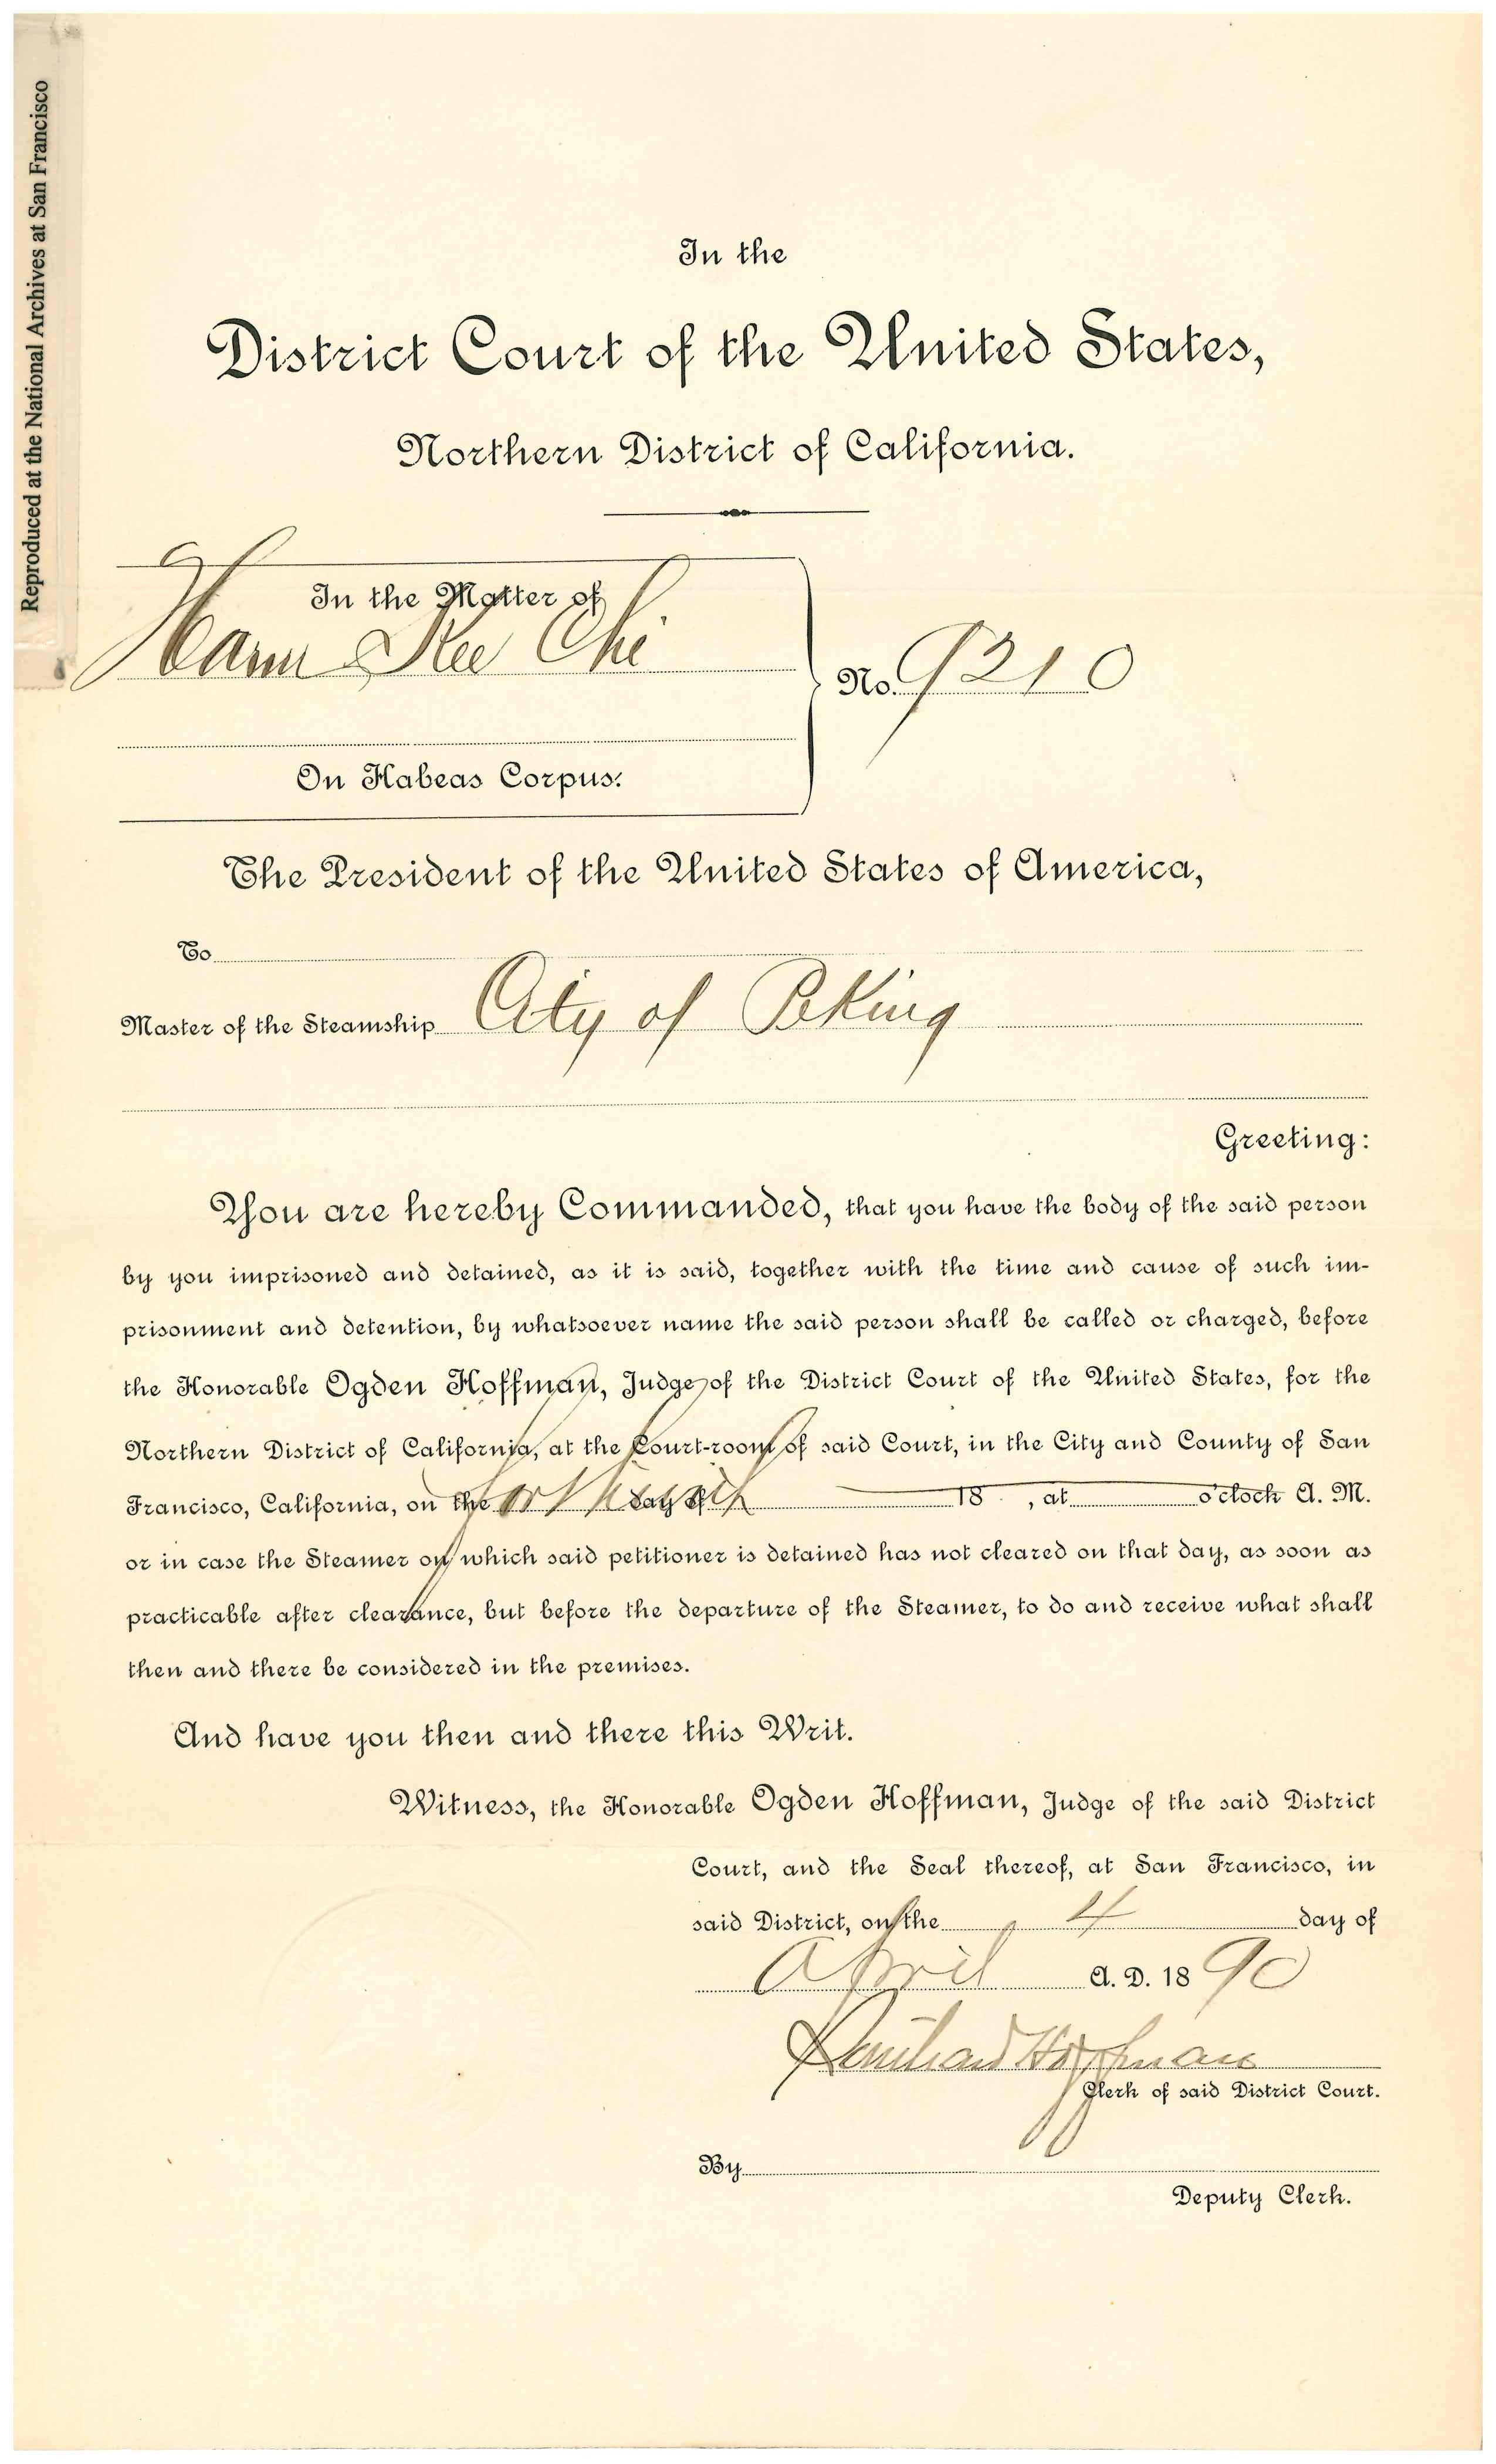 Reproduced at the National Archives at San Francisco
In the
District Court of the United States,
Northern District of California.
In the Matter of
Kee Chi
No. 9210
On Habeas Corpus.
The President of the United States of America,
To
Master of the Steamship City of Peking
Greeting:
You are hereby Commanded, that you have the body of the said person
by you imprisoned and detained, as it is said, together with the time and cause of such im-
prisonment and detention, by whatsoever name the said person shall be called or charged, before
the Honorable Ogden Hoffman, Judge of the District Court of the United States, for the
Northern District of California, at the Court-room of said Court, in the City and County of San
Francisco, California, on the forthwith day of 18 , at o'clock A. M.
or in case the Steamer on which said petitioner is detained has not cleared on that day, as soon as
practicable after clearance, but before the departure of the Steamer, to do and receive what shall
then and there be considered in the premises.
And have you then and there this Writ.
Witness, the Honorable Ogden Hoffman, Judge of the said District
Court, and the Seal thereof, at San Francisco, in
said District, on the 4 day of
April A. D. 1890
Hoffman
Clerk of said District Court.
By
Deputy Clerk.